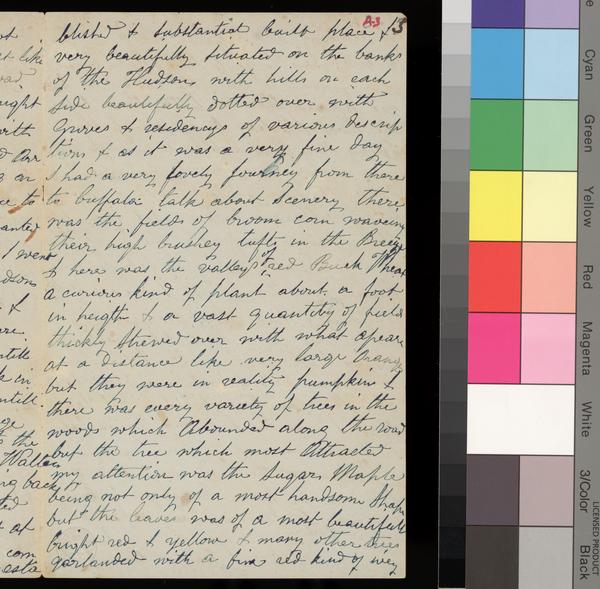 B3
blished & substantial built place & 3
very beautifully situated on the banks
of the Hudson with hills on each
side beautifully dotted over with
Groves & residencys of various descrip
tions & as it was a very fine day
I had a very lovely journey from there
to buffalo talk about scenery there
was the fields of broom corn waveing
their high brushey tufts in the Breeze
& here was the valleys of red Buck Wheat
a curious kind of plant about a foot
in heigth & a vast quantity of fields
thickly strewed over with what apear
at a distance like very large Orang
but they were in reality pumpkins &
there was every variety of trees in the
woods which Abounded along the road
but the tree which most Attracted
my attention was the Sugar Maple
being not only of a most handsome Shape
but the leaves was of a most beautifull
bright red & yellow & many other trees
garlanded with a fine red kind of ivey
Cyan
Green
Yellow
Red
Magenta
White
3/Color
Black
LICENSED PRODUCT